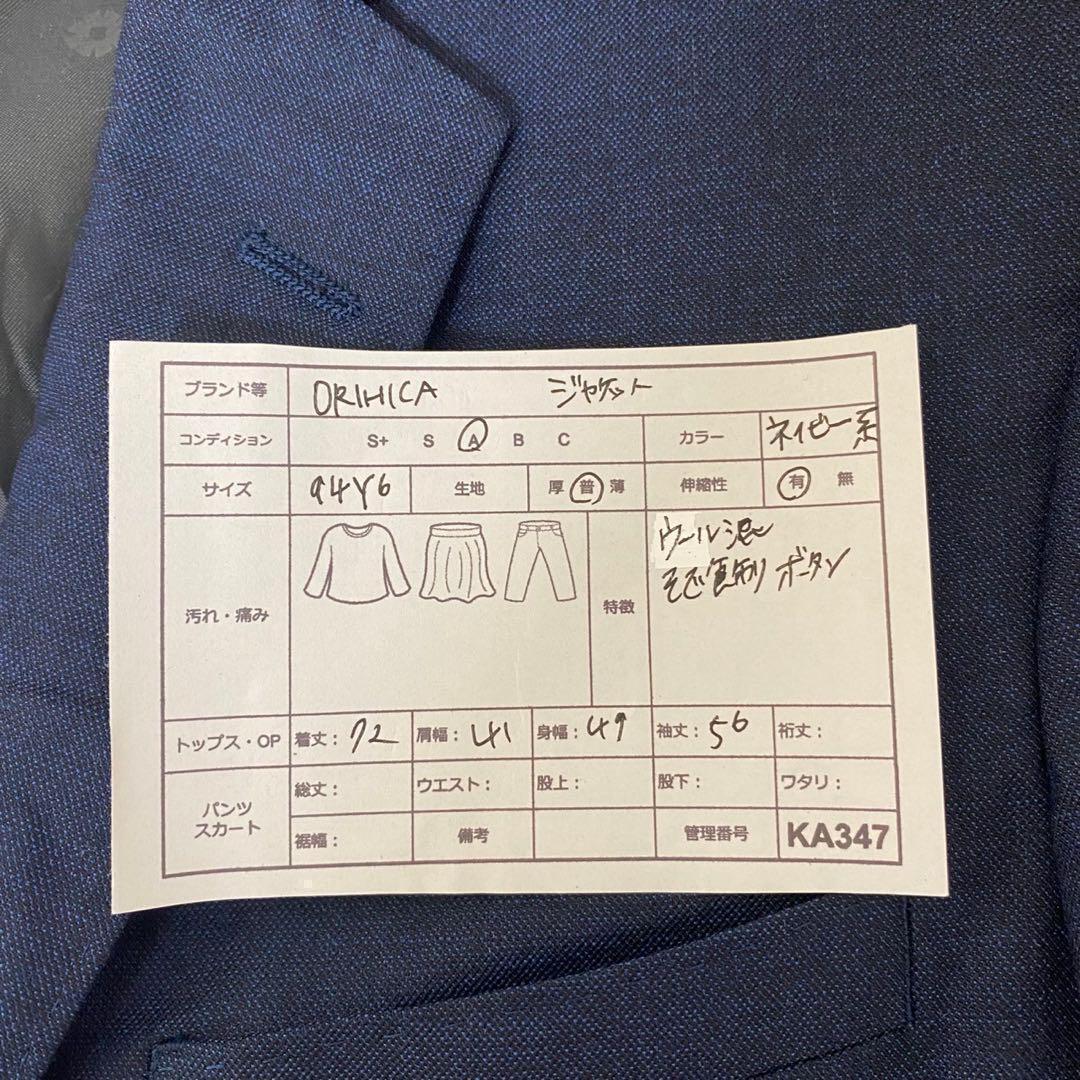 ブランド等 ORIHICA ジャケット
コンディション S+ S A B C カラー ネイビー系
サイズ 94Y6 生地 厚 普 薄 伸縮性 有 無
汚れ・痛み 特徴 ウール混
ボタン
トップス・OP 着丈: 72 肩幅: 41 身幅: 49 袖丈: 56 裄丈:
パンツ スカート
総丈: ウエスト: 股上: 股下: ワタリ:
裾幅: 備考 管理番号 KA347